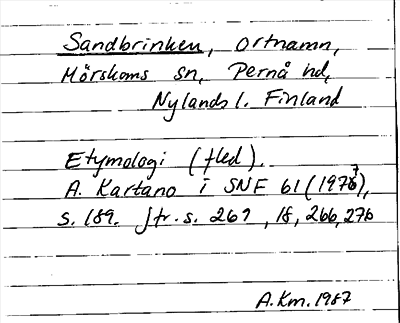 Sandbrinken, ortnamn,
Mörskoms sn, Pernå hd,
Nylands l. Finland
Etymologi (fled).
A. Kartano i SNF 61 (1977),
s. 189. Jfr. s. 267, 18, 266, 276
A.Km. 1987